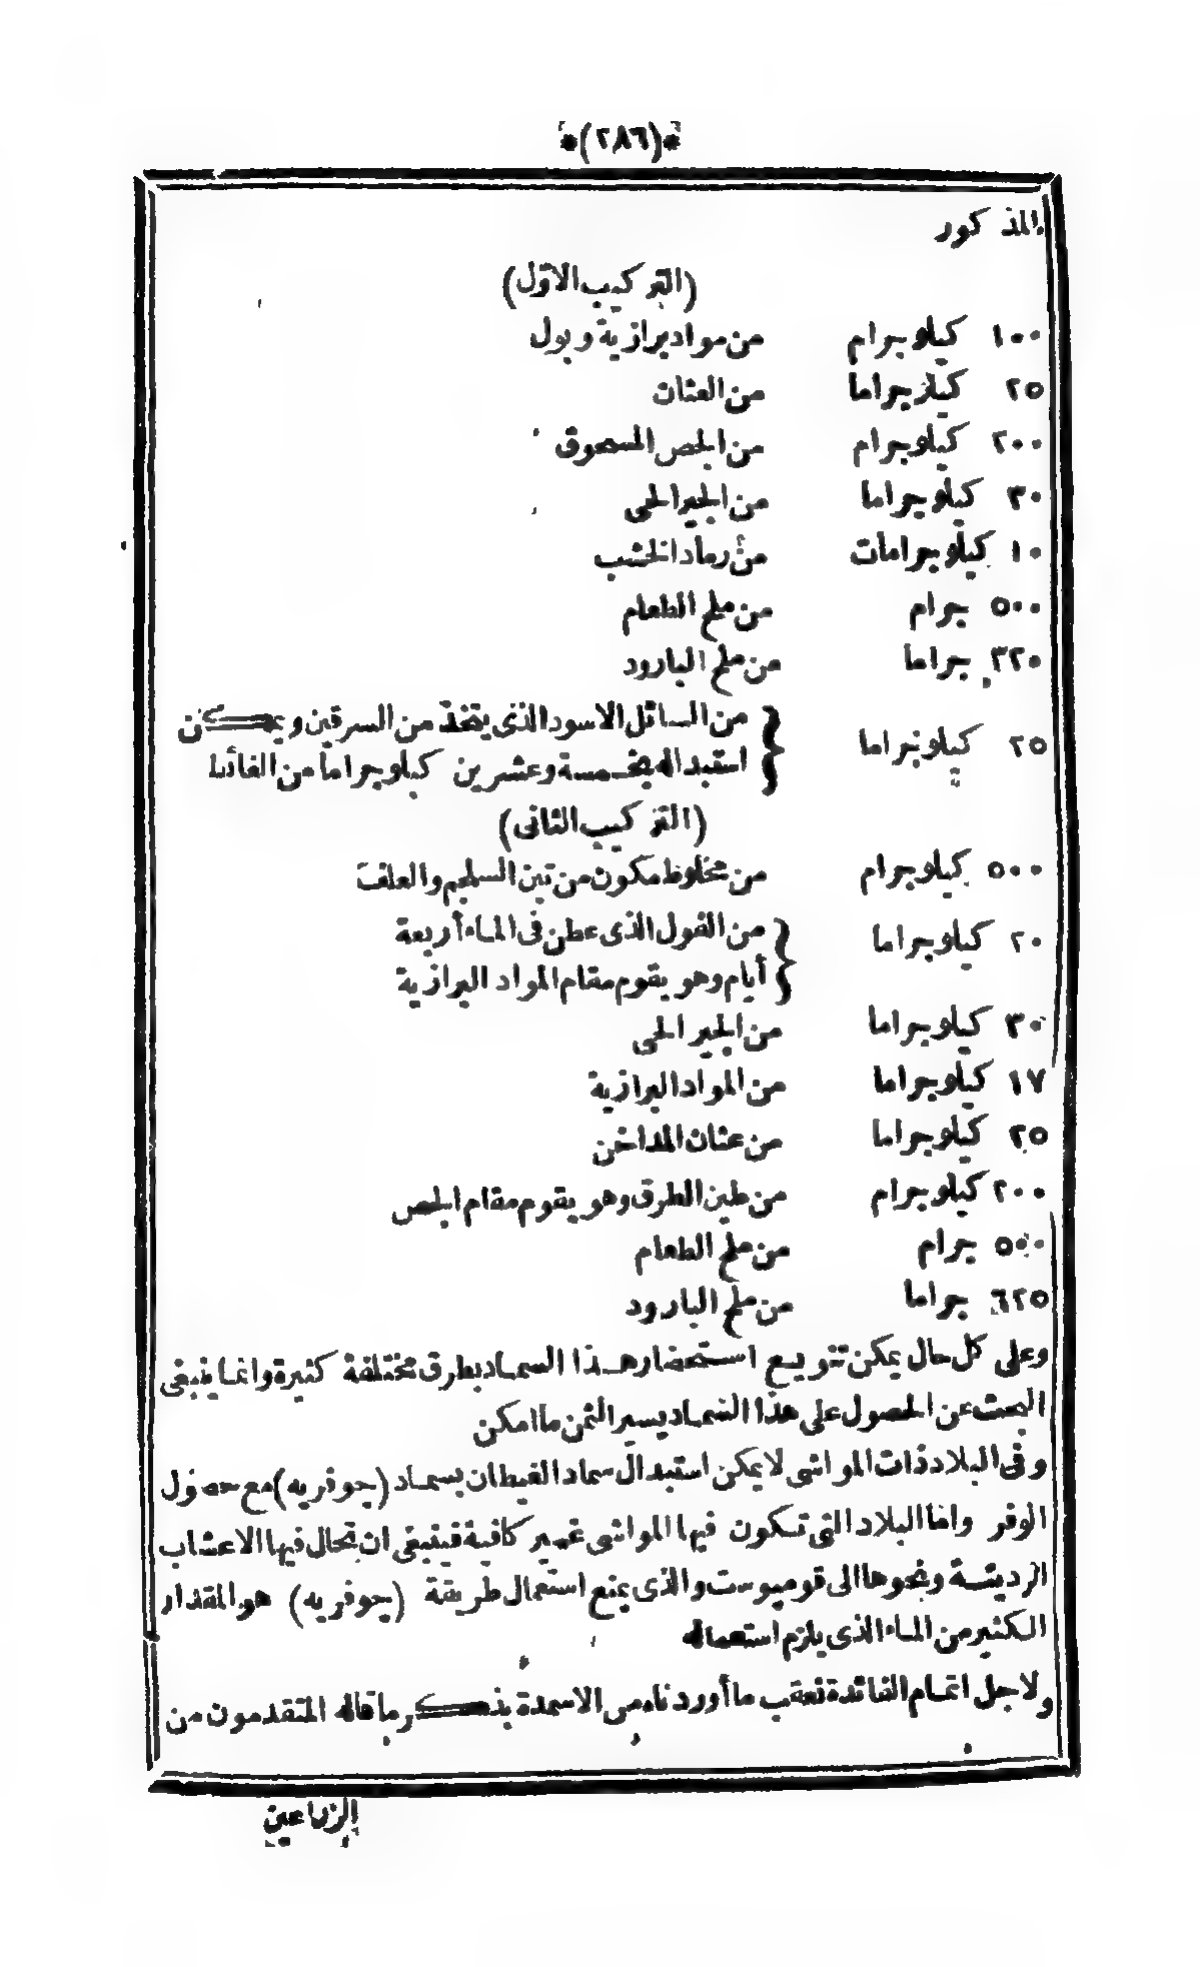 *(٢٨٦)*
المذكور
(التركيب الاول)
١٠٠ كيلوجرام من مواد برازية وبول
٢٥ كيلوجراما من العثان
٢٠٠ كيلوجرام من الجص المسحوق
٣٠ كيلوجراما من الجير الحى
١٠ كيلوجرامات من رماد الخشب
٥٠٠ جرام من ملح الطعام
٣٢٠ جراما من ملح البارود
٢٥ كيلوجراما { من السائل الاسود الذى يتخذ من السرقين ويمكن
استبداله بخمسة وعشرين كيلوجراما من الغائط
(التركيب الثانى)
٥٠٠ كيلوجرام من مخلوط مكون من تبن السلجم والعلف
٢٠ كيلوجراما { من الفول الذى عطن فى الماء أربعة
أيام وهو يقوم مقام المواد البرازية
٣٠ كيلوجراما من الجير الحى
١٧ كيلوجراما من المواد البرازية
٢٥ كيلوجراما من عثان المداخن
٢٠٠ كيلوجرام من طين الطرق وهو يقوم مقام الجص
٥٠٠ جرام من ملح الطعام
٦٢٥ جراما من ملح البارود
وعلى كل حال يمكن تنويع استحضار هذا السماد بطرق مختلفة كثيرة وانما ينبغى
البحث عن الحصول على هذا السماد بيسير الثمن ما امكن
وفى البلاد ذات المواشى لا يمكن استبدال سماد الغيطان بسماد (جوفريه) مع حصول
الوفر واما البلاد التى تكون فيها المواشى غير كافية فينبغى ان تحال فيها الاعشاب
الرديئة ونحوها الى قومبوست والذى يمنع استعمال طريقة (جوفريه) هو المقدار
الكثير من الماء الذى يلزم استعماله
ولاجل اتمام الفائدة نعقب ما أوردناه من الاسمدة بذكر ما قاله المتقدمون من
الزراعين